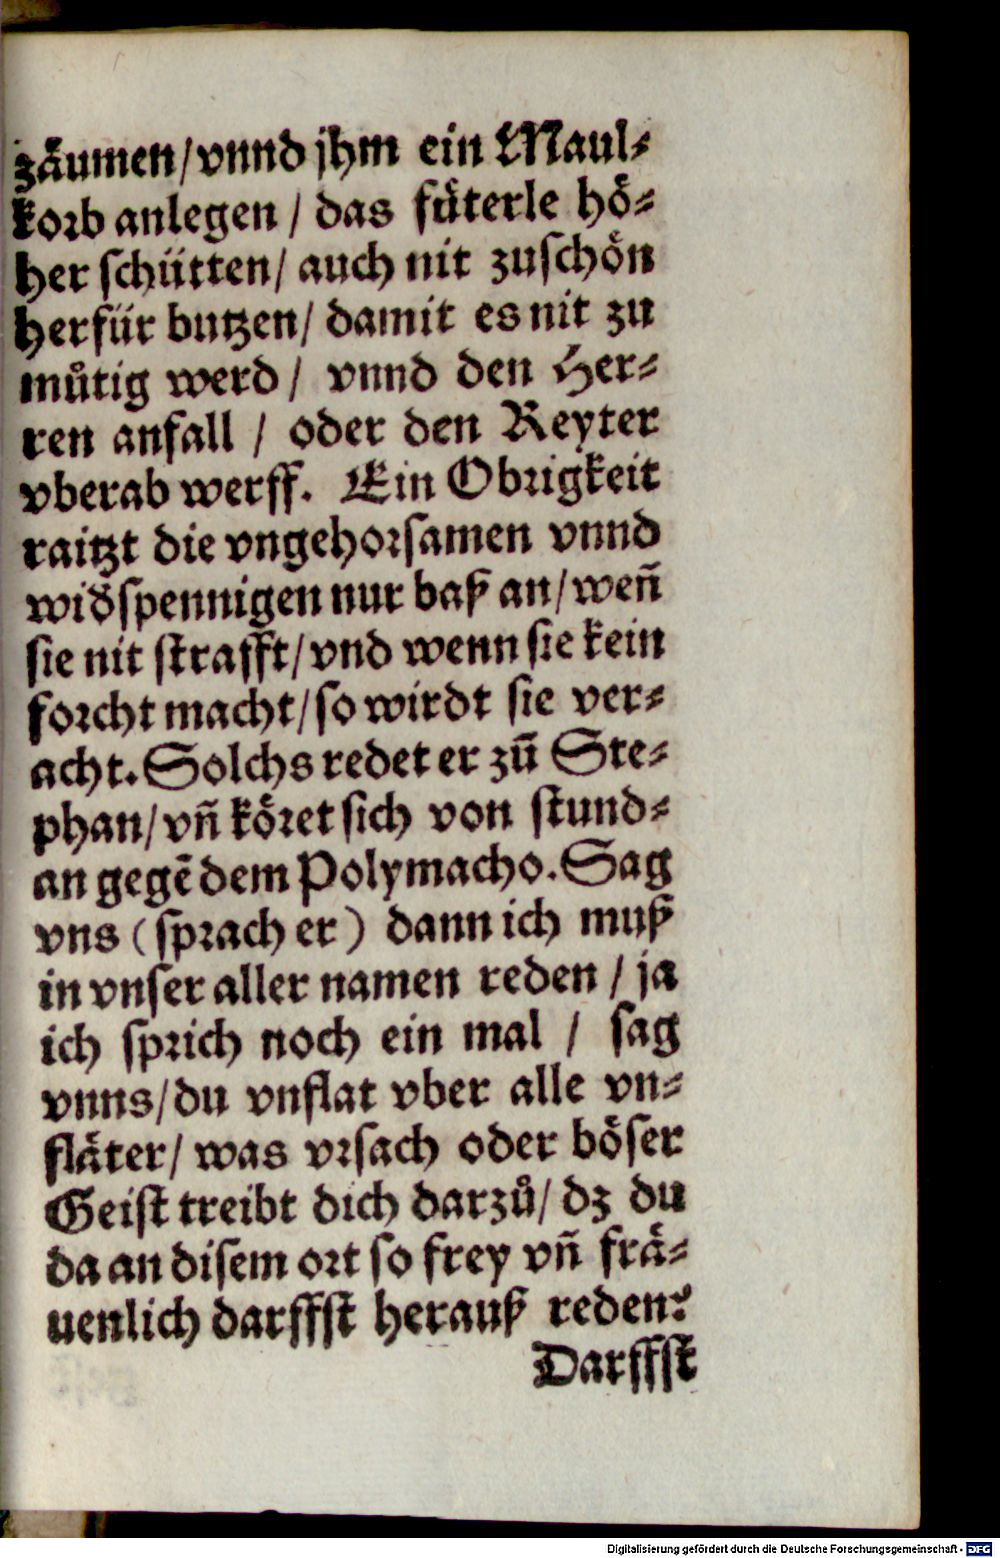 zåumen/vnnd jhm ein Maul⸗
korb anlegen / das fůterle hö⸗
her schütten/ auch nit zuschön
herfür butzen/ damit es nit zu
můtig werd / vnnd den Her⸗
ren anfall / oder den Reyter
vberab werff. Ein Obrigkeit
raitzt die vngehorsamen vnnd
wid̕spennigen nur baß an/wen̄
sie nit strafft/vnd wenn sie kein
forcht macht/so wirdt sie ver⸗
acht. Solchs redet er zū Ste⸗
phan/vn̄ köret sich von stund⸗
an gegē dem Polymacho. Sag
vns (sprach er) dann ich muß
in vnser aller namen reden / ja
ich sprich noch ein mal / sag
vnns/du vnflat vber alle vn⸗
fläter/ was vrsach oder böser
Geist treibt dich darzů/ dz du
da an disem ort so frey vn̄ frä⸗
uenlich darffst herauß reden?
Darffst
Digitalisierung gefördert durch die Deutsche Forschungsgemeinschaft - DFG